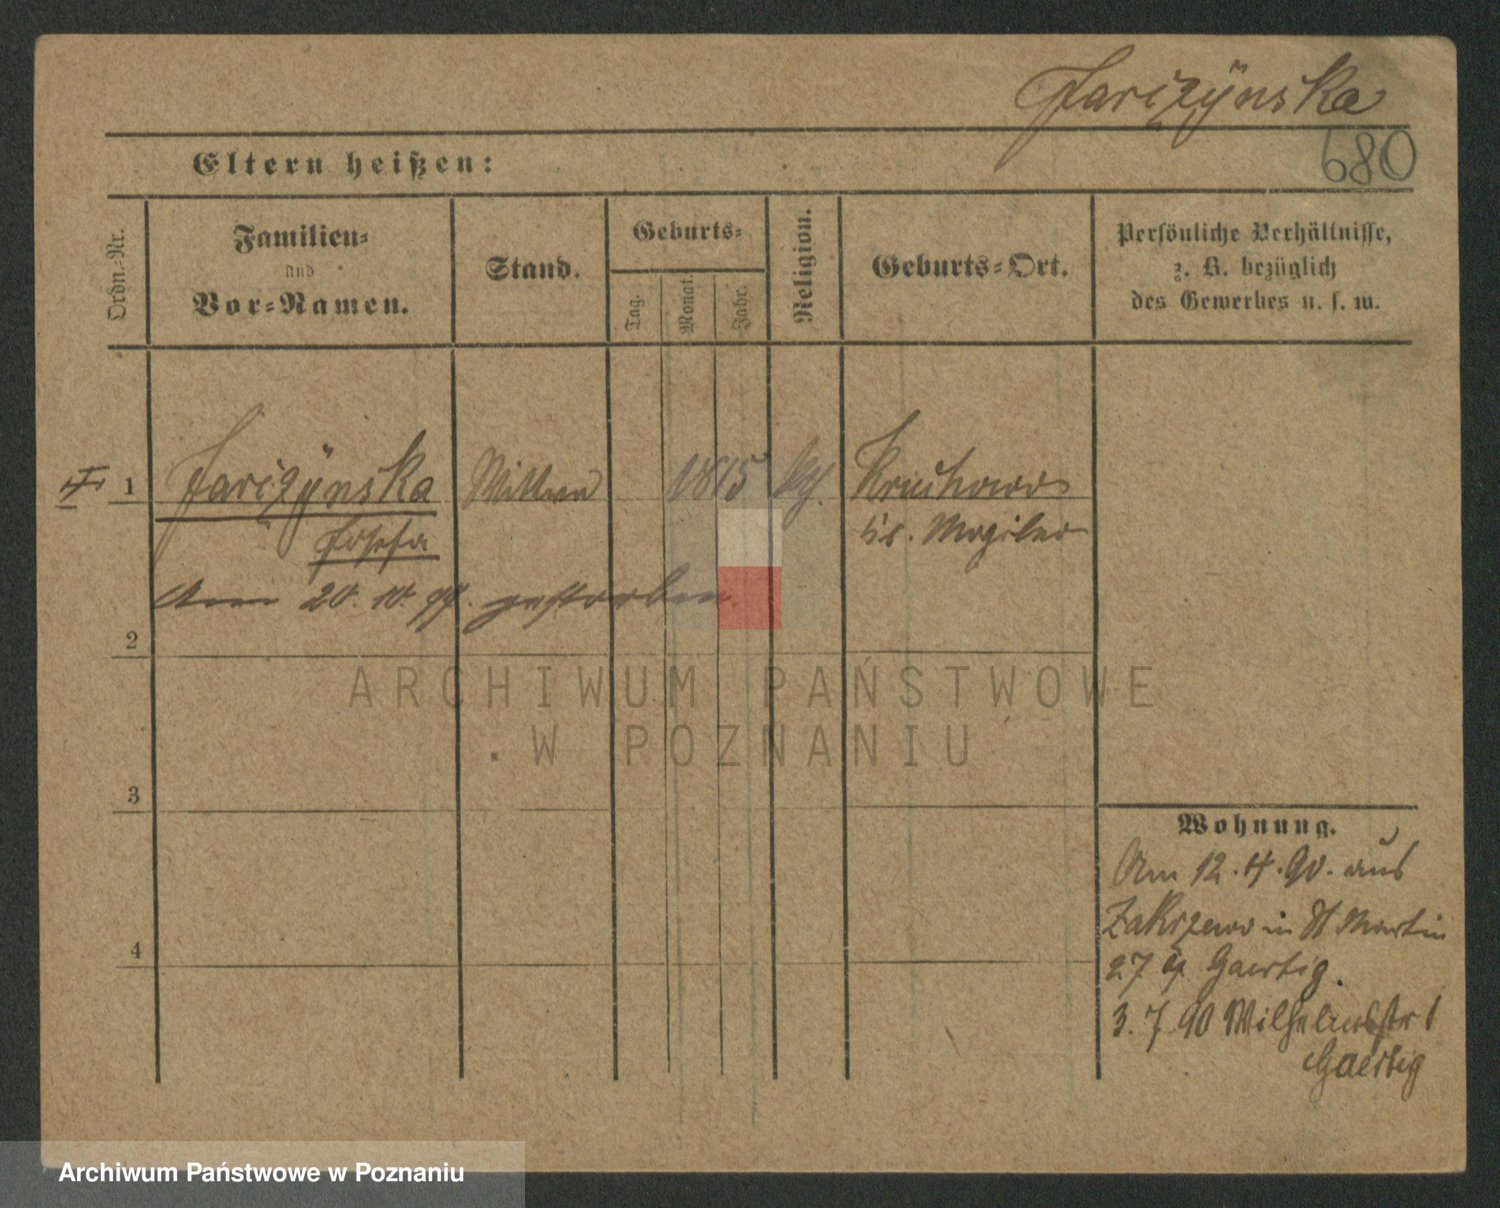 Jarizÿnska
680
Eltern heißen:
Ordn.-Nr.
Familien-
und
Vor-Namen.
Stand.
Geburts-
Tag.
Monat.
Jahr.
Religion.
Geburts-Ort.
Persönliche Verhältnisse,
z. B. bezüglich
des Gewerbes u. s. w.
1
Jarizÿnska
Josefa
Wittwe
1815
Kr. Mogilno
Am 20. 10. 90. gestorben.
2
3
4
Wohnung.
Am 12. 4. 90. aus
Zakrzewo in St Martin
27 Gaertig.
3. 7. 90 Wilhelmsstr 1
Gaertig
ARCHIWUM PAŃSTWOWE
W POZNANIU
Archiwum Państwowe w Poznaniu